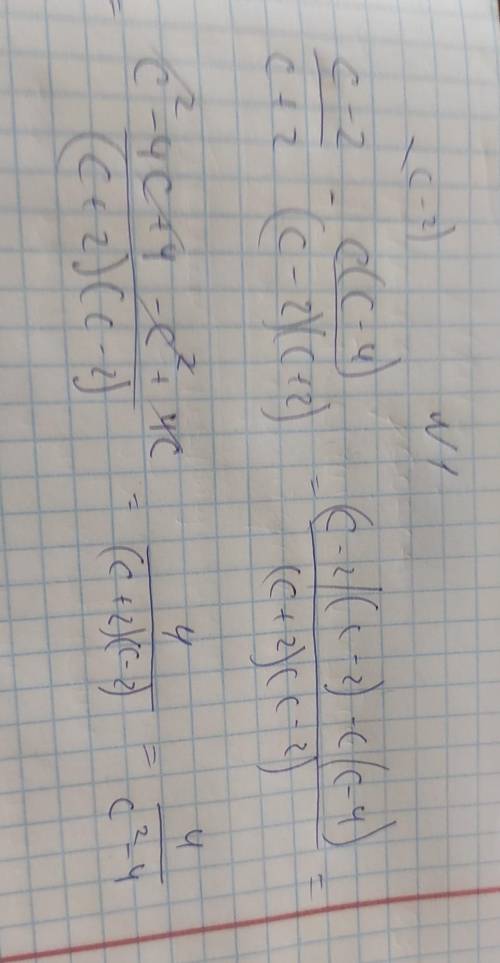 N 1
\(c-2)
(c-2)/(c+2) - c(c-4)/((c-2)(c+2)) = ((c-2)(c-2)-c(c-4))/((c+2)(c-2)) =
= (c²-4c+4-c²+4c)/((c+2)(c-2)) = 4/((c+2)(c-2)) = 4/(c²-4)